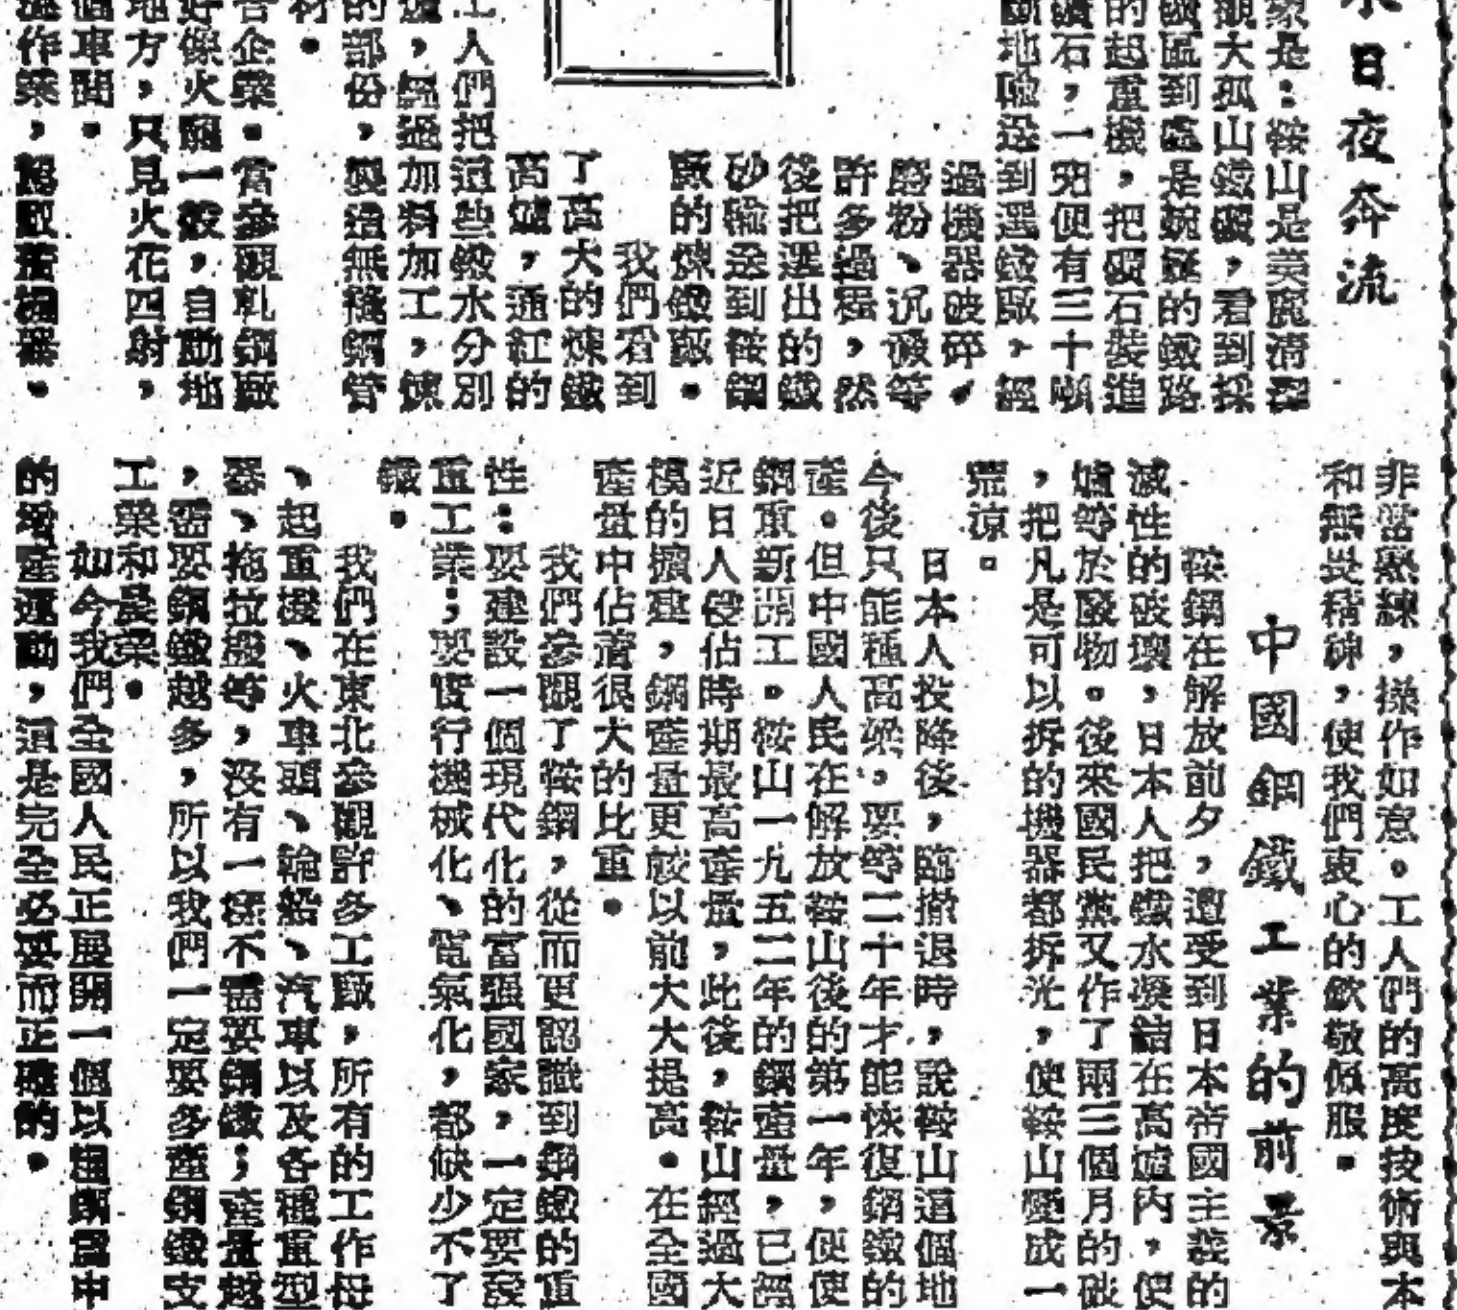 水日夜奔流
象是：鞍山是美麗清潔
觀大孤山鐵礦，看到採
礦區到處是蜿蜒的鐵路
的起重機，把礦石裝進
礦石，一兜便有三十噸
斷地輸送到選鐵廠，經
過機器破碎，
磨粉、沉澱等
許多過程，然
後把選出的鐵
砂輸送到鞍鋼
廠的煉鐵廠。
我們看到
了高大的煉鐵
高爐，通紅的
工人們把這些鐵水分別
爐，經過加料加工，煉
的部份，製造無縫鋼管
材。
各企業。當參觀軋鋼廠
好像火龍一般，自動地
地方，只見火花四射，
個車間。
作業，機器。
非常熟練，操作如意。工人們的高度技術與本
和無畏精神，使我們衷心的欽敬佩服。
中國鋼鐵工業的前景
鞍鋼在解放前夕，遭受到日本帝國主義的
滅性的破壞，日本人把鐵水凝結在高爐內，使
爐等於廢物。後來國民黨又作了兩三個月的破
，把凡是可以拆的機器都拆光，使鞍山變成一
荒涼。
日本人投降後，臨撤退時，說鞍山這個地
今後只能種高粱，要等二十年才能恢復鋼鐵的
產。但中國人民在解放鞍山後的第一年，便使
鋼重新開工。鞍山一九五二年的鋼產量，已經
近日人侵佔時期最高產量，此後，鞍山經過大
模的擴建，鋼產量更較以前大大提高。在全國
產量中佔着很大的比重。
我們參觀了鞍鋼，從而更認識到鋼鐵的重
性：要建設一個現代化的富強國家，一定要發
重工業；要實行機械化、電氣化，都缺少不了
鐵。
我們在東北參觀許多工廠，所有的工作母
、起重機、火車頭、輪船、汽車以及各種重型
器、拖拉機等，沒有一樣不需要鋼鐵；產量越
，需要鋼鐵越多，所以我們一定要多產鋼鐵支
工業和農業。
如今我們全國人民正展開一個以糧鋼為中
的增產運動，這是完全必要而正確的。